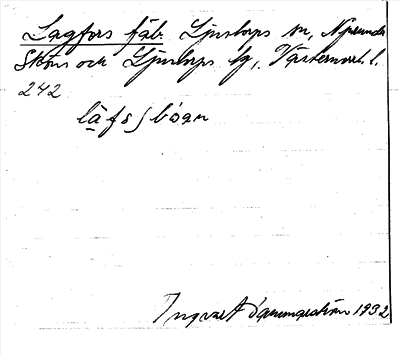 Lagfors fäb. Ljustorps sn, Njurunda
Sköns och Ljustorps tg, Västernorrl. l.
242
lä̱fs ʃbóan
Ingvart 1932